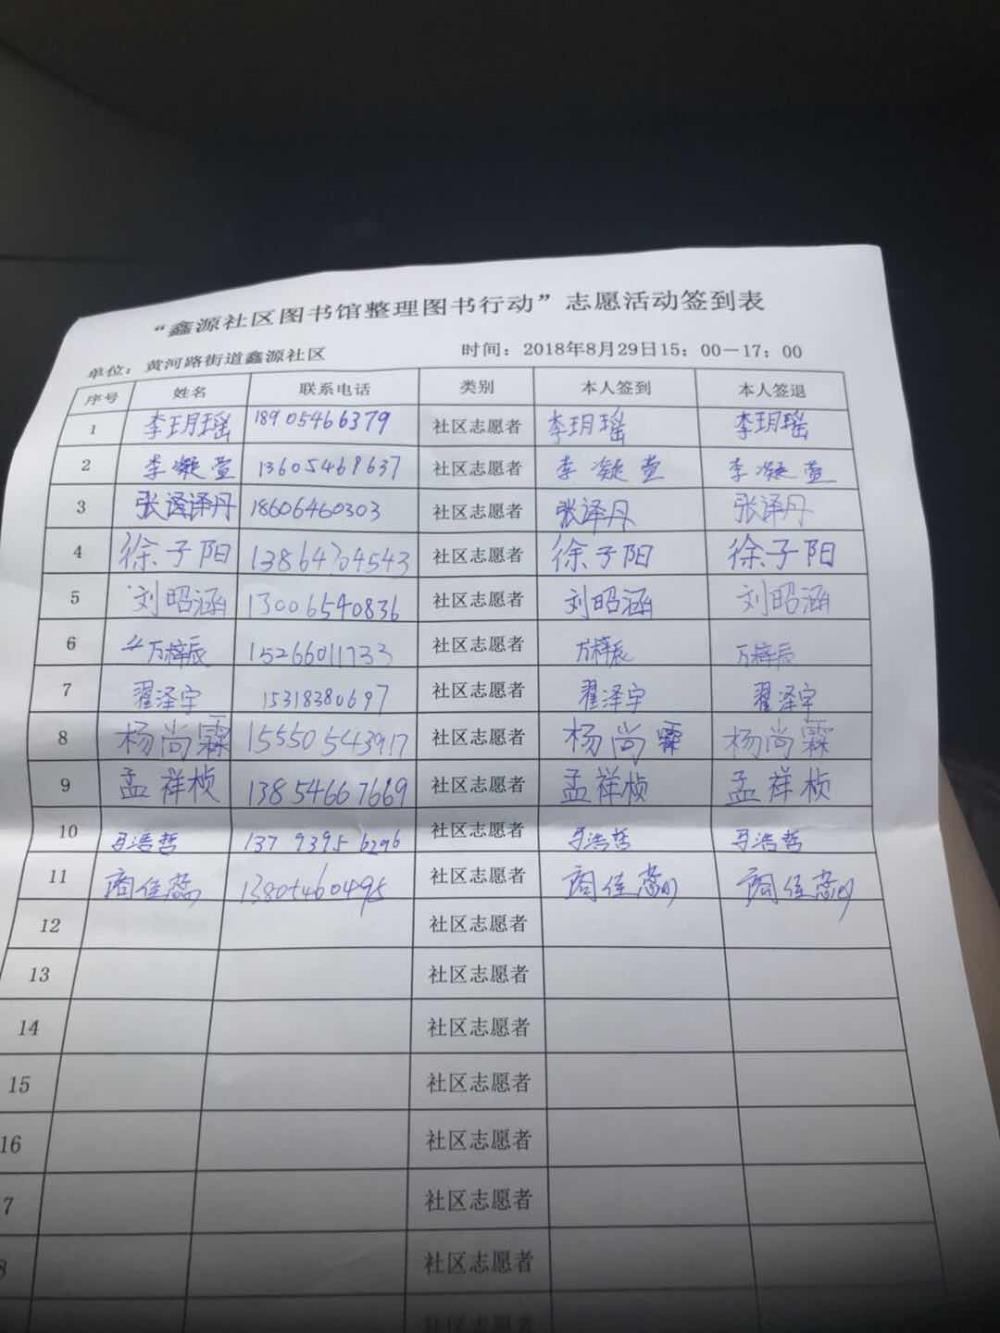 “鑫源社区图书馆整理图书行动”志愿活动签到表
单位：黄河路街道鑫源社区 时间：2018年8月29日15：00－17；00
序号 姓名 联系电话 类别 本人签到 本人签退
1 李玥瑶 18905466379 社区志愿者 李玥瑶 李玥瑶
2 李凝萱 13605468637 社区志愿者 李凝萱 李凝萱
3 张泽译丹 18606460303 社区志愿者 张译丹 张译丹
4 徐子阳 13864704543 社区志愿者 徐子阳 徐子阳
5 刘昭涵 13006540836 社区志愿者 刘昭涵 刘昭涵
6 万梓辰 15266011733 社区志愿者 万梓辰 万梓辰
7 翟泽宇 15318380697 社区志愿者 翟泽宇 翟泽宇
8 杨尚霖 15550543917 社区志愿者 杨尚霖 杨尚霖
9 孟祥桢 13854667669 社区志愿者 孟祥桢 孟祥桢
10 马浩哲 13793956296 社区志愿者 马浩哲 马浩哲
11 社区志愿者
12 社区志愿者
13 社区志愿者
14 社区志愿者
15 社区志愿者
16 社区志愿者
7 社区志愿者
8 社区志愿者